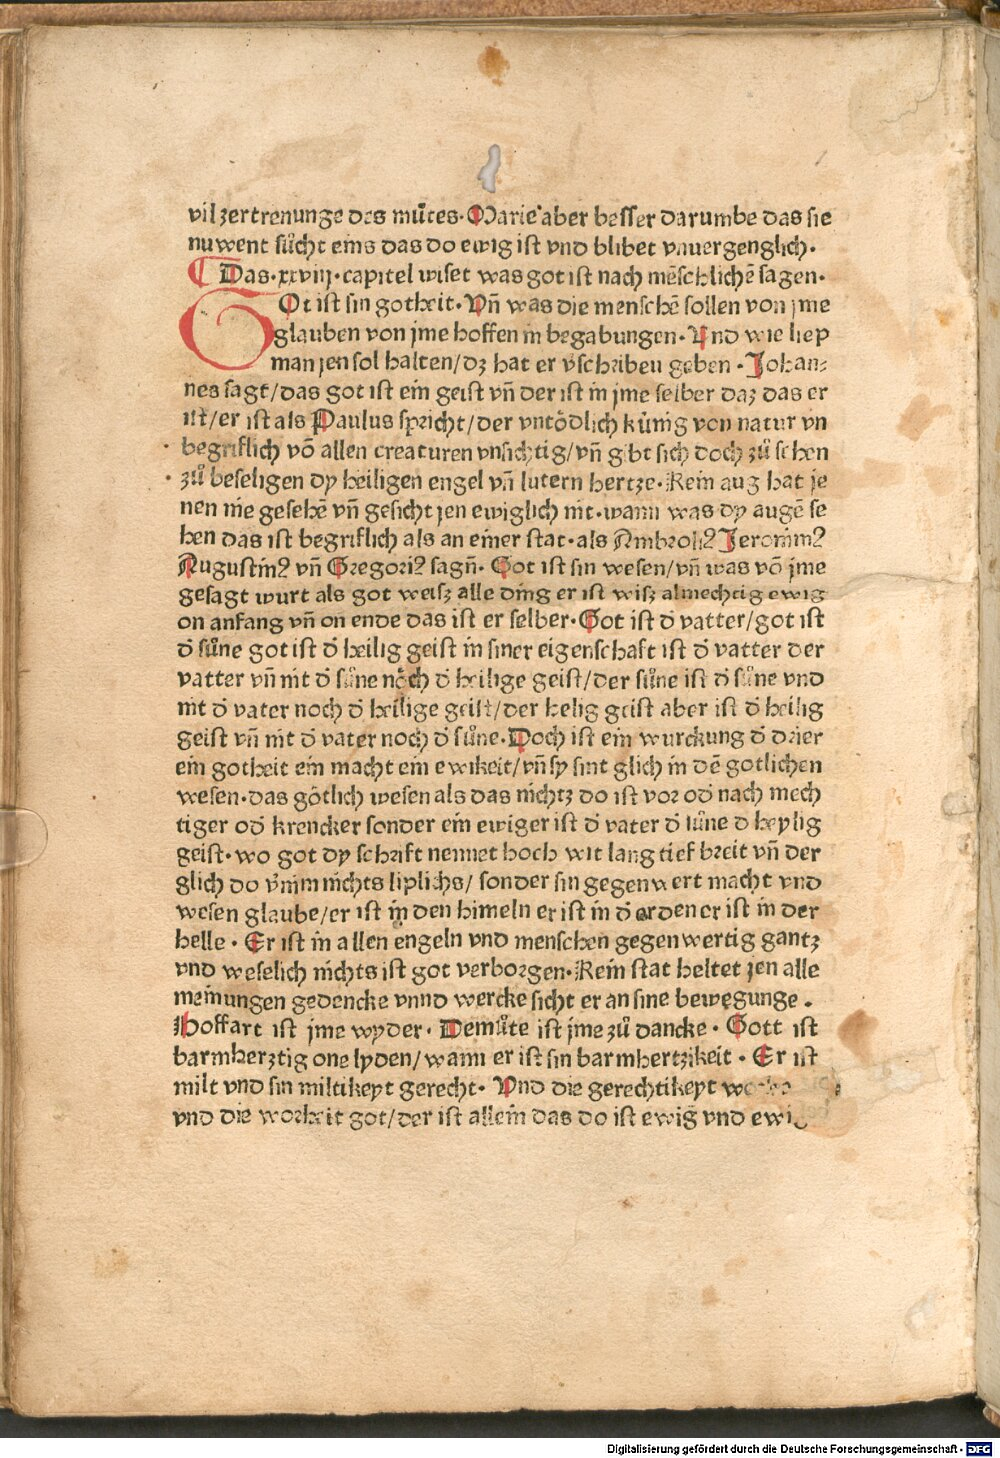 vil zertrenunge des můtes· Marie aber besser darumbe das sie
nuwent sůcht eins das do ewig ist vnd blibet vnuergenglich·
Das·xxviij·capitel wiset was got ist nach mēschlichē sagen·
GOt ist sin gotheit· Vn̄ was die menschē sollen von jme
glauben von jme hoffen in begabungen· Vnd wie liep
man jen sol halten/dz hat er v̄schriben geben · Johan⸗
nes sagt/das got ist ein geist vn̄ der ist in jme selber daz das er
ist/er ist als Paulus spricht/der vntödlich künig von natur vn
begriflich vō allen creaturen vnsichtig/vn̄ gibt sich doch zů sehen
zů beseligen dy heiligen engel vn̄ lutern hertze· Kein aug hat je
nen nie gesehē vn̄ gesicht jen ewiglich nit·wann was dy augē se
hen das ist begriflich als an einer stat·als Ambrosiꝰ Jeronimꝰ
Augustinꝰ vn̄ Gregoriꝰ sagn̄· Got ist sin wesen/vn̄ was vō jme
gesagt wurt als got weisz alle ding er ist wisz almechtig ewig
on anfang vn̄ on ende das ist er selber· Got ist d̄ vatter/got ist
d̄ sůne got ist d̄ heilig geist in siner eigenschaft ist d̄ vatter der
vatter vn̄ nit d̄ sůne nöch d̄ heilige geist/der sůne ist d̄ sůne vnd
nit d̄ vater noch d̄ heilige geist/der helig geist aber ist d̄ heilig
geist vn̄ nit d̄ vater noch d̄ sůne· Doch ist ein wurckung d̄ drier
ein gotheit ein macht ein ewikeit/vn̄ sy sint glich in dē gotlichen
wesen·das götlich wesen als das nichtz do ist vor od̄ nach mech
tiger od̄ krencker sonder ein ewiger ist d̄ vater d̄ sůne d heylig
geist· wo got dy schrift nennet hoch wit lang tief breit vn̄ der
glich do v̄nim nichts liplichs/ sonder sin gegenwert macht vnd
wesen glaube/er ist in den himeln er ist in d̄ erden er ist in der
helle · Er ist in allen engeln vnd menschen gegenwertig gantz
vnd weselich nichts ist got verborgen· Kein stat heltet jen alle
meinungen gedencke vnnd wercke sicht er an sine bewegunge ·
Hoffart ist jme wyder · Demůte ist jme zů dancke · Gott ist
barmherztig one lyden/wann er ist sin barmhertzikeit · Er ist
milt vnd sin miltikeyt gerecht· Vnd die gerechtikeyt
vnd die worheit got/der ist allein das do ist ewig vnd
Digitalisierung gefördert durch die Deutsche Forschungsgemeinschaft · DFG